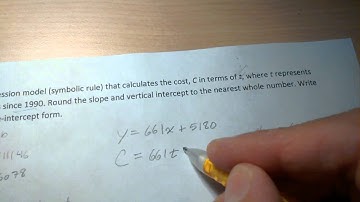 ession model (symbolic rule) that calculates the cost, C in terms of t, where t represents
since 1990. Round the slope and vertical intercept to the nearest whole number. Write
-intercept form.
b
y = 661x + 5180
11146
C = 661t
6078